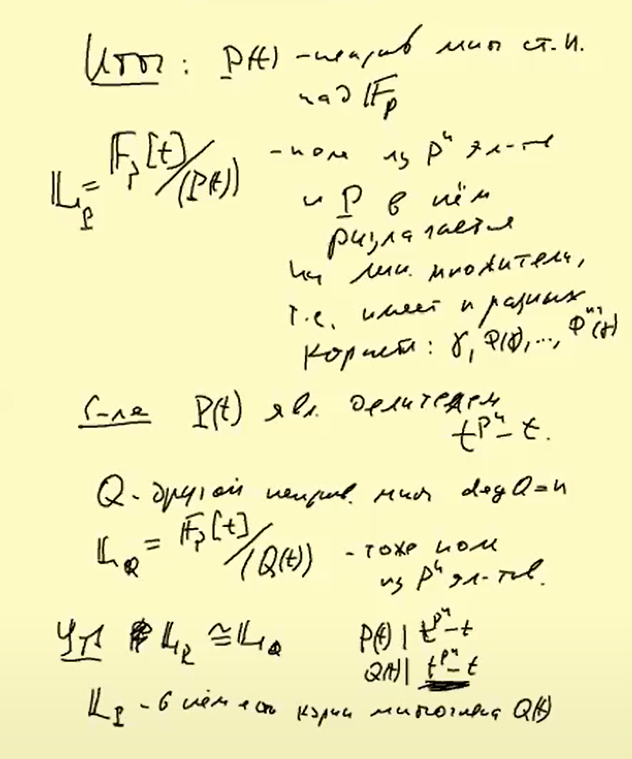 Итог: P(t) - неприв мнч ст. n.
над 𝔽ₚ
𝕃_P = 𝔽ₚ[t]/(P(t)) - поле из pⁿ эл-тв
и P в нём
разлагается
на лин. множители,
т.е. имеет n разных
корней: γ, Φ(γ), ..., Φⁿ⁻¹(γ)
С-ле P(t) явл. делителем
t^pⁿ - t.
Q - другой неприв. мнч deg Q = n
𝕃_Q = 𝔽ₚ[t]/(Q(t)) - тоже поле
из pⁿ эл-тов.
Утв 𝕃_P ≅ 𝕃_Q P(t) | t^pⁿ - t
Q(t) | t^pⁿ - t
𝕃_P - в нём есть корни многочлена Q(t)